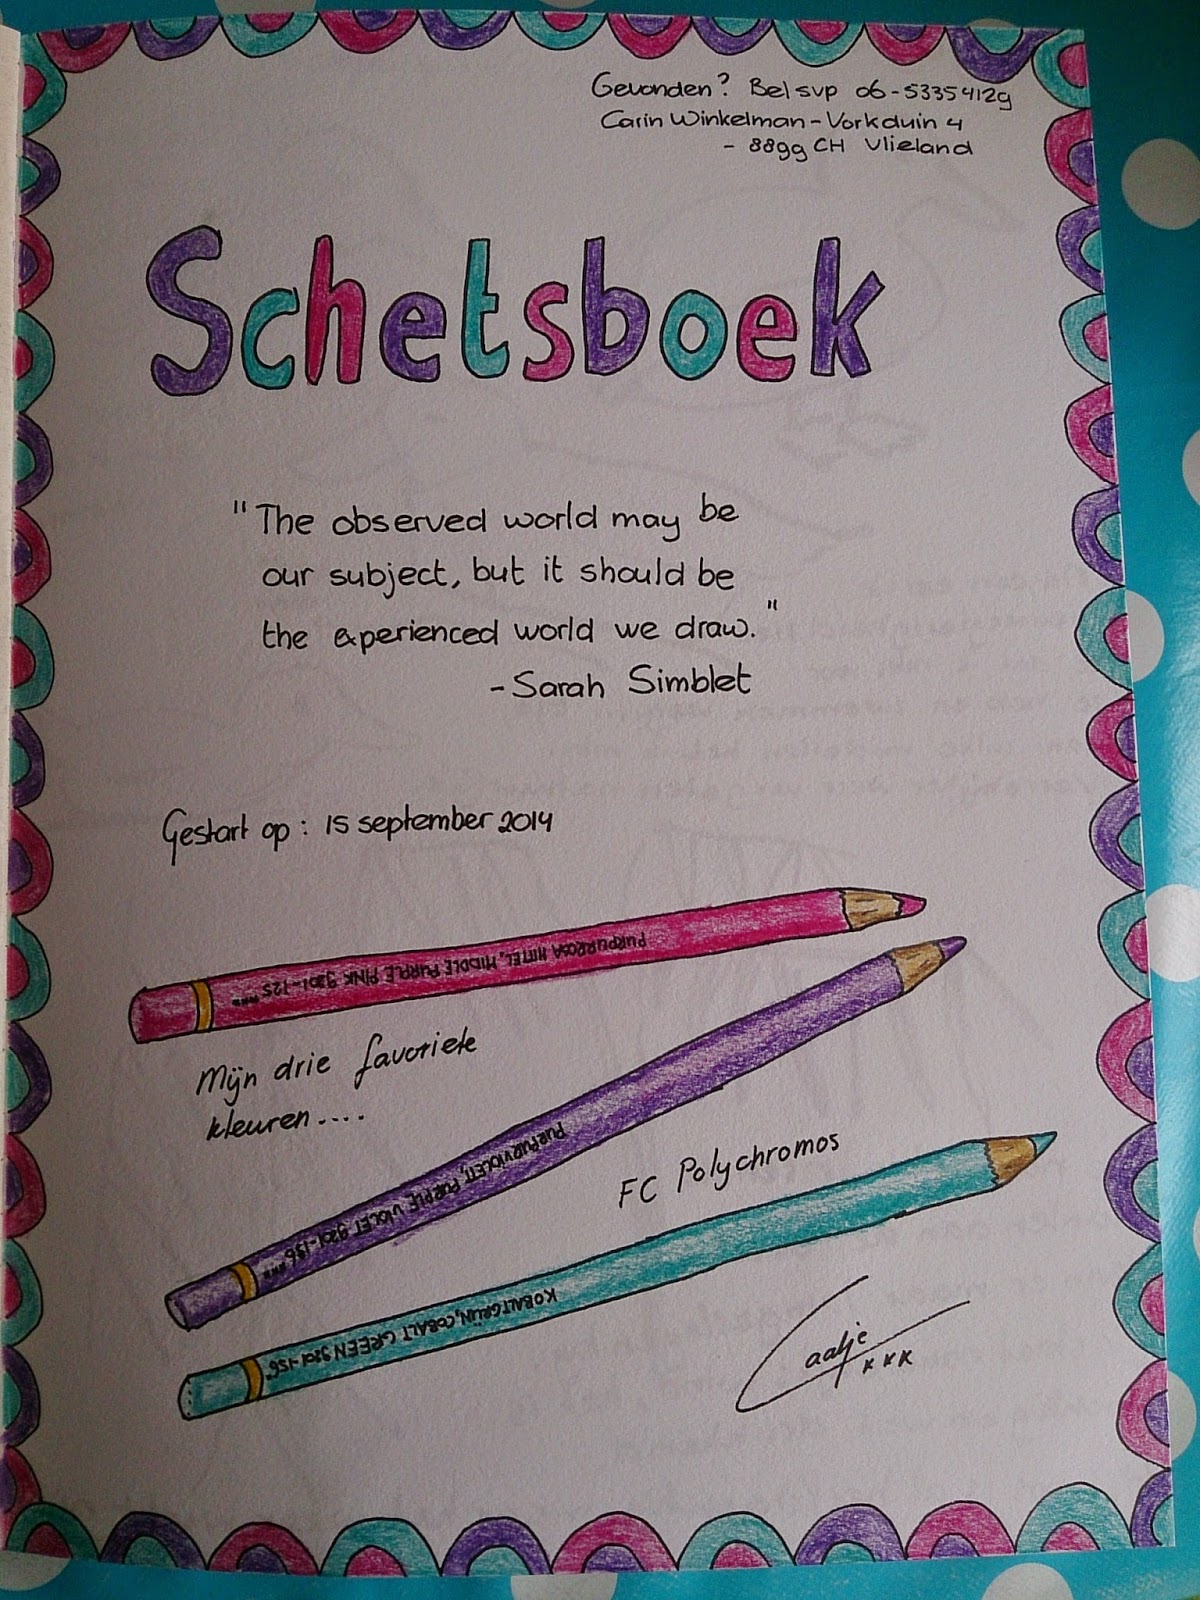 Gevonden? Bel svp 06-53354129
Carin Winkelman - Vorkduin 4
- 8899 CH Vlieland
Schetsboek
"The observed world may be
our subject, but it should be
the experienced world we draw."
- Sarah Simblet
Gestart op: 15 september 2014
PURPURROSA MITTEL, MIDDLE PURPLE PINK 9201-125 ***
Mijn drie favoriete
kleuren....
PURPURVIOLETT, PURPLE VIOLET 9201-136 ***
FC Polychromos
KOBALTGRÜN, COBALT GREEN 9201-156
Caatje
xxx